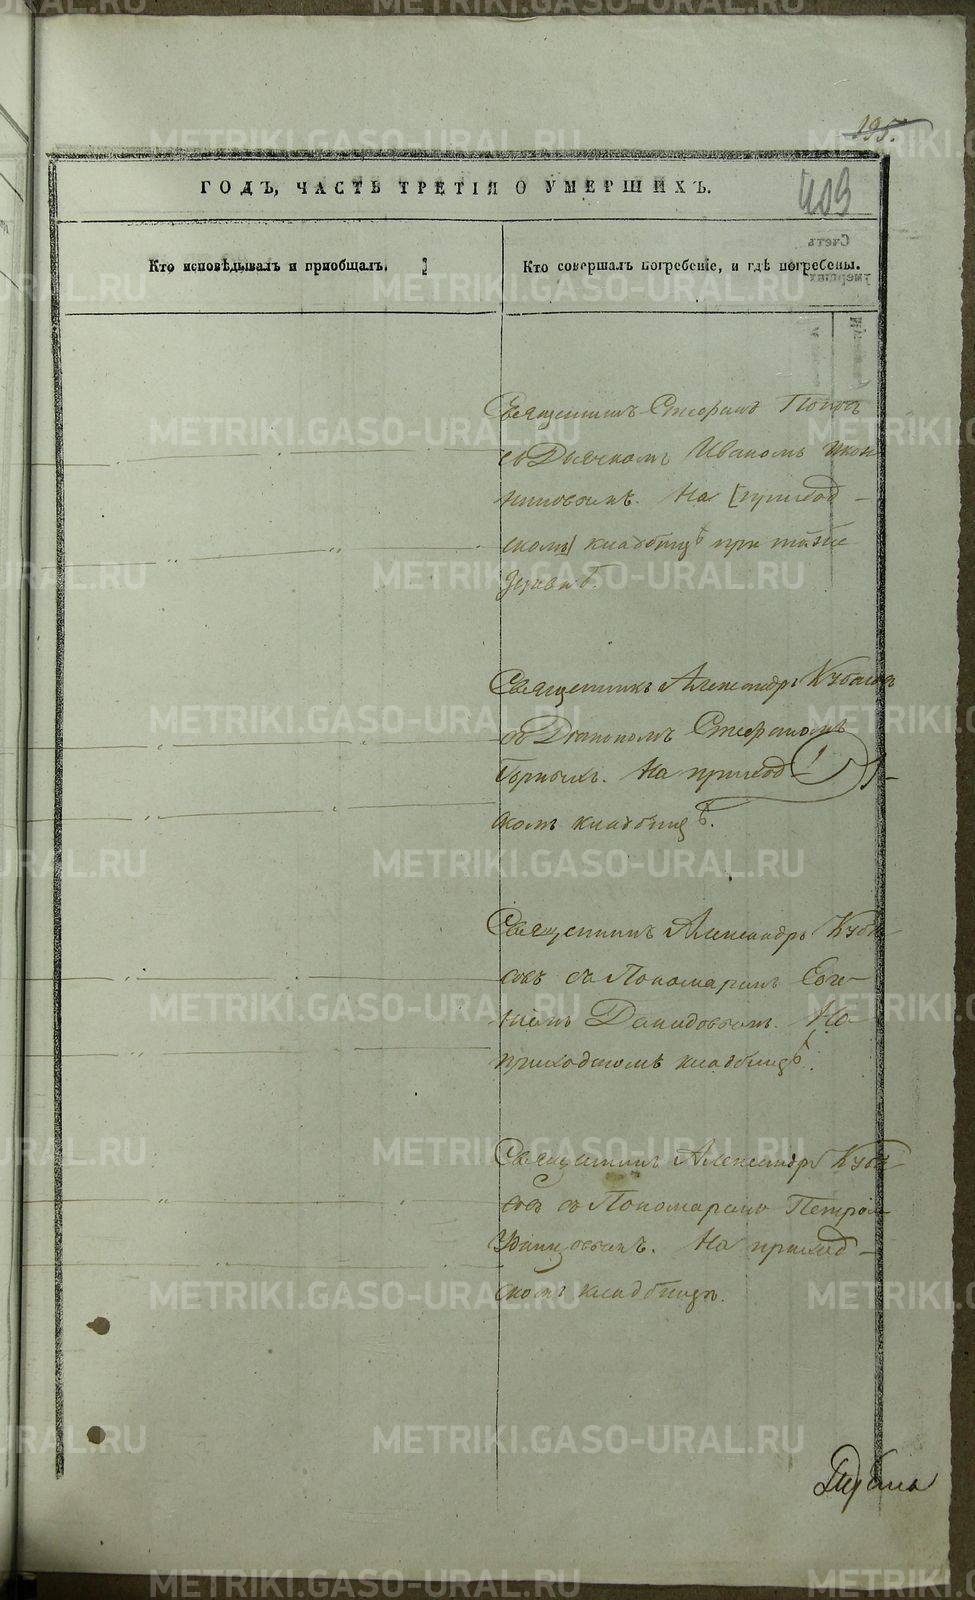 195.
ГОДЪ, ЧАСТЬ ТРЕТІЯ О УМЕРШИХЪ.
409
Кто исповѣдывалъ и пріобщалъ.
Кто совершалъ погребеніе, и гдѣ погребены.
Священникъ Стефанъ Поповъ
съ Дьячкомъ Иваномъ Икон-
никовымъ. На [приход-
скомъ] кладбищѣ при той же
Церквѣ.
Священникъ Александръ
съ Діакономъ Стефаномъ
Горныхъ. На приход-
скомъ кладбищѣ.
Священникъ Александръ
съ Пономаремъ Евге-
ніемъ Давидовымъ. На
приходскомъ кладбищѣ.
Священникъ Александръ
съ Пономаремъ Петромъ
На приход-
скомъ кладбищѣ.
METRIKI.GASO-URAL.RU